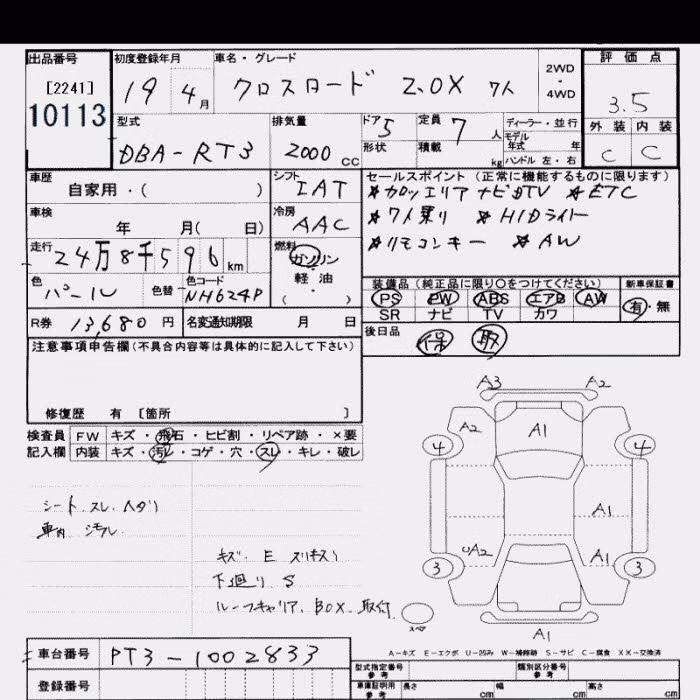 出品番号 初度登録年月 車名・グレード 2WD・4WD 評価点
[2241]
10113 19 4月 クロスロード 2.0X 7人 3.5
型式 排気量 ドア 5 定員 7人 ディーラー・並行 外装 内装
形状 積載 kg モデル年式 年 ハンドル 左・右
DBA-RT3 2000cc C C
車歴 自家用・( ) シフト IAT セールスポイント (正常に機能するものに限ります)
★カロッエリア ナビDTV ★ETC
車検 年 月( 日) 冷房 AAC ★7人乗り ★HIDライト
走行 24万8千596km 燃料 ガソリン・軽油・( ) ★リモコンキー ★AW
色 パール 色替 色コード NH624P 装備品(純正品に限り○をつけてください) 新車保証書
PS PW ABS エアB AW 有・無
SR ナビ TV カワ
R券 13,680円 名変通知期限 月 日 後日品 保 取
注意事項申告欄(不具合内容等は具体的に記入して下さい)
修復歴 有 [箇所 ]
検査員 FW キズ・飛石・ヒビ割・リペア跡・×要
記入欄 内装 キズ・汚レ・コゲ・穴・スレ・キレ・破レ
A3 A2
A2 A1
4 4
シート スレ ヘタリ
車内 A1
UA2 A1
キズ E スリキズ
3 3
下廻り S
ルーフキャリア、BOX 取付
スペア A1
A-キズ E-エクボ U-凹み W-補修跡 S-サビ C-腐食 XX-交換済
車台番号 RT3-1002833
型式指定番号 参考 類別区分番号 参考
登録番号 車庫証明用 参考 長さ cm 幅 cm 高さ cm